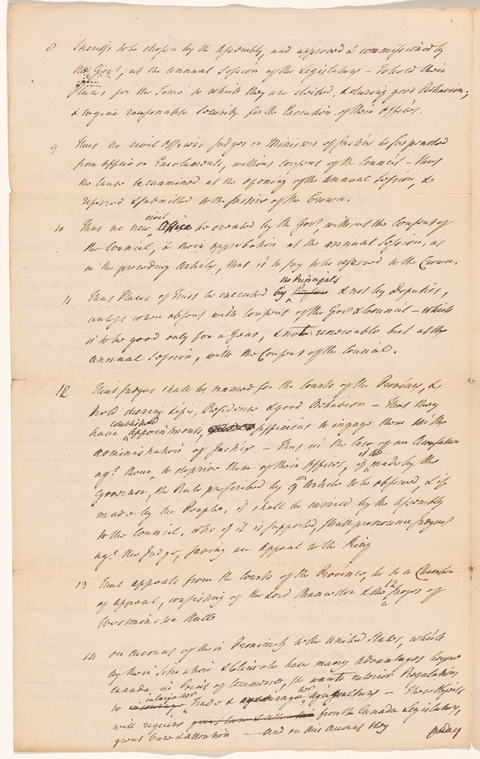 8 Sheriffs to be chosen by the Assembly, and approved & commissioned by
the Govr, at the annual Session of the Legislature - To hold their
Places for the Time to which they are elected, & during good Behaviour,
& to give reasonable Security for the Execution of their Offices.
9 That no civil Officers Judges or Ministers of Justice be suspended
from Office or Emoluments, without consent of the Council - that
the cause be examined at the opening of the Annual Session, &
referred & submitted to the Justice of the Crown.
10 That no new civil Office be created by the Govr, without the Consent of
the Council, & their approbation at the annual Session, as
in the preceding Article, that is to say when referred to the Crown.
11 That Places of Trust be executed by the Principals & not by Deputies,
unless when absent with consent of the Govr & Council - which
is to be good only for a Year, & not renewable but at the
annual Session, with the Consent of the Council.
12 That Judges shall be named for the Courts of the Province, &
hold during Life, Residence & good Behavior - That they
have established Appointments, sufficient to engage them in the
administration of Justice - That in the Case of an Accusation
agt. them, to deprive them of their Offices, if made by the
Governor, the Rule prescribed by 9th Article to be observed, & if
made by the People, it shall be carried by the Assembly
to the Council, who if it is supported, shall pronounce Judgment
agt. the Judge, saving an appeal to the King
13 That appeals from the Courts of the Province, be to a Chamber
of appeal, consisting of the Lord Chancellor & the 12 Judges of
Westminster Hall
14 On account of their Proximity to the United States, which
by their Situation & Climate have many Advantages beyond
Canada, in Point of Commerce, it wants interior Regulation
to enlarge her Trade & her agriculture - These Objects
will require from the Canada Legislature,
great Care & Attention - and on this account they
ought